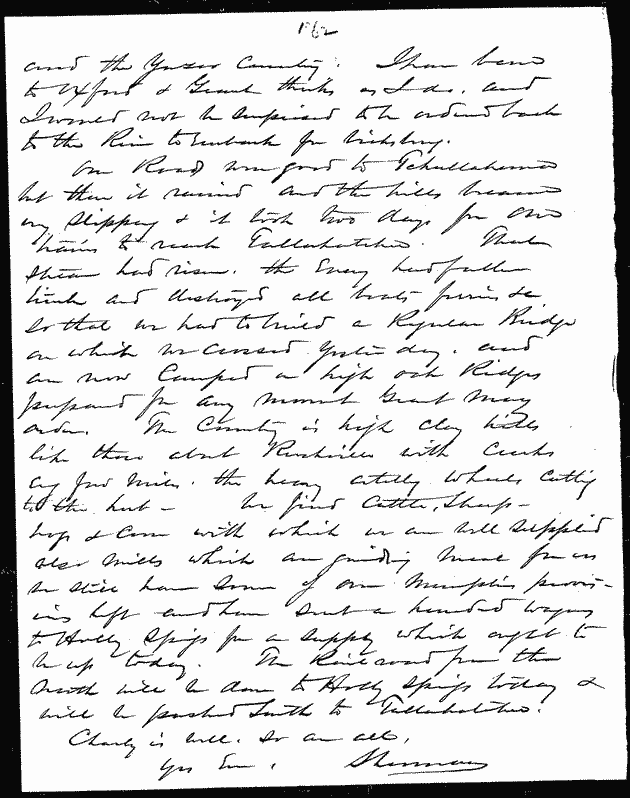 1862
and the Yazoo Country. I have been
to Oxford & Grant thinks as I do. and
I would not be surprised to be ordered back
to the River to embark for Vicksburg.
Our Road was good to Tchullahoma
but then it rained and the hills became
very slippery & it took two days for our
trains to reach Tallahatchie. That
stream had risen. the Enemy had fallen
timber and destroyed all boats ferries &c
so that we had to build a Regular Bridge
on which we crossed yesterday. and
are now Camped on high oak Ridges
prepared for any moment Grant may
order. The Country is high clay hills
like those about with Creeks
every few miles. the heavy artillery wheels cutting
to the hub - We find Cattle, Sheep -
hogs & Corn with which we are well supplied
also mills which are grinding meal for us
We still have some of our Memphis provis-
ions left and have sent a hundred wagons
to Holly Springs for a supply which ought to
be up today. The Railroad from the
North will be done to Holly Springs today &
will be pushed South to Tallahatchie.
Charley is well. So are all,
Yrs Ever, Sherman